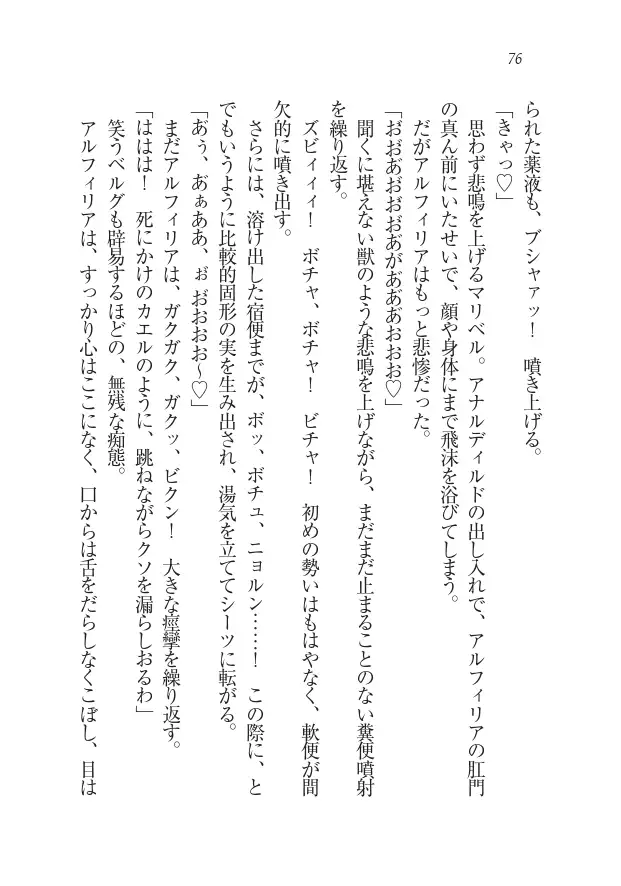 76
られた薬液も、ブシャァッ！　噴き上げる。
「きゃっ♡」
　思わず悲鳴を上げるマリベル。アナルディルドの出し入れで、アルフィリアの肛門
の真ん前にいたせいで、顔や身体にまで飛沫を浴びてしまう。
　だがアルフィリアはもっと悲惨だった。
「おお゛あ゛お゛お゛お゛あ゛があ゛あ゛あ゛おおお♡」
　聞くに堪えない獣のような悲鳴を上げながら、まだまだ止まることのない糞便噴射
を繰り返す。
　ズビィィィ！　ボチャ、ボチャ！　ビチャ！　初めの勢いはもはやなく、軟便が間
欠的に噴き出す。
　さらには、溶け出した宿便までが、ボッ、ボチュ、ニョルン……！　この際に、と
でもいうように比較的固形の実を生み出され、湯気を立ててシーツに転がる。
「あ゛ぅ、あ゛ぁああ、ぉ゛お゛おおお～♡」
　まだアルフィリアは、ガクガク、ガクッ、ビクン！　大きな痙攣を繰り返す。
「ははは！　死にかけのカエルのように、跳ねながらクソを漏らしおるわ」
　笑うベルグも辟易するほどの、無残な痴態。
　アルフィリアは、すっかり心はここになく、口からは舌をだらしなくこぼし、目は